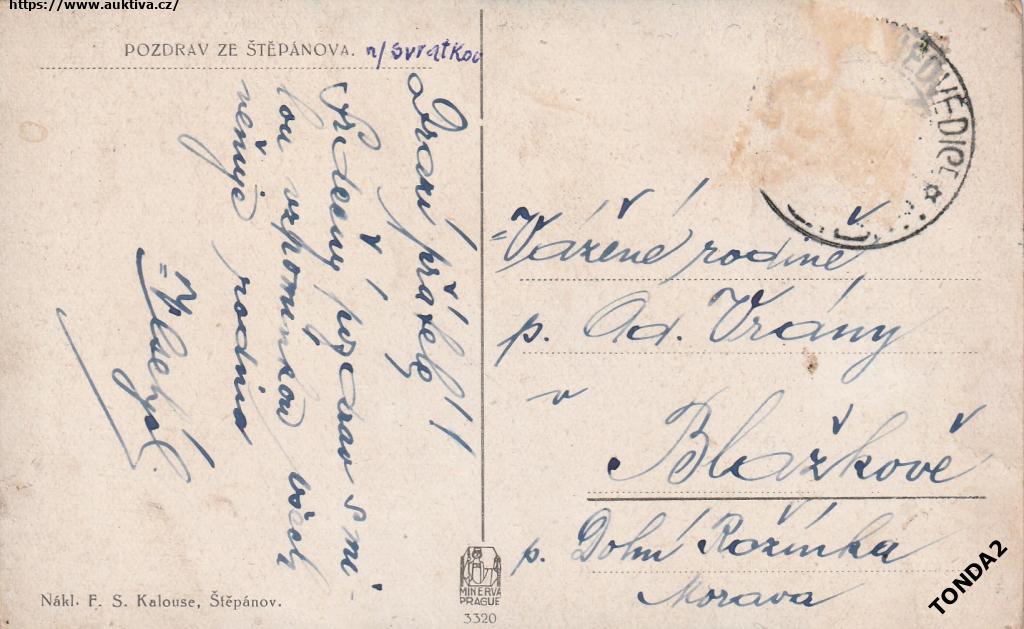 https://www.auktiva.cz/
POZDRAV ZE ŠTĚPÁNOVA. n/Svratkou
Drazí přátelé!!
Srdečný pozdrav s mi-
lou vzpomínkou všech
věnuje rodina
=Vážené rodině
p. Ad. Vrány
v
Blažkově
p. Dolní Rožínka
Morava
NEDVĚDICE
MINERVA
PRAGUE
3320
Nákl. F. S. Kalouse, Štěpánov.
TONDA2